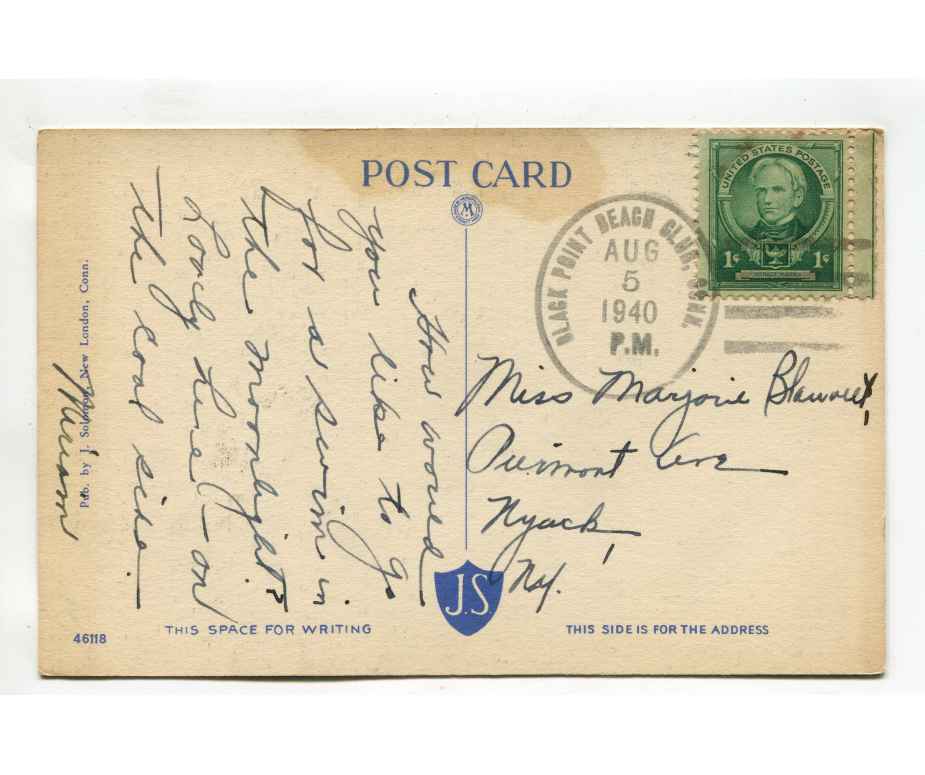 POST CARD
UNITED STATES POSTAGE
1¢ 1¢
HORACE MANN
BLACK POINT BEACH CLUB, CONN.
AUG
5
1940
P.M.
How would
you like to go
for a swim in
the moonlight?
Lovely here - on
the cool side.
Miriam
Miss Marjorie Blauvelt
Piermont Ave
Nyack,
N.Y.
Pub. by J. Solomon, New London, Conn.
J.S
46118
THIS SPACE FOR WRITING
THIS SIDE IS FOR THE ADDRESS